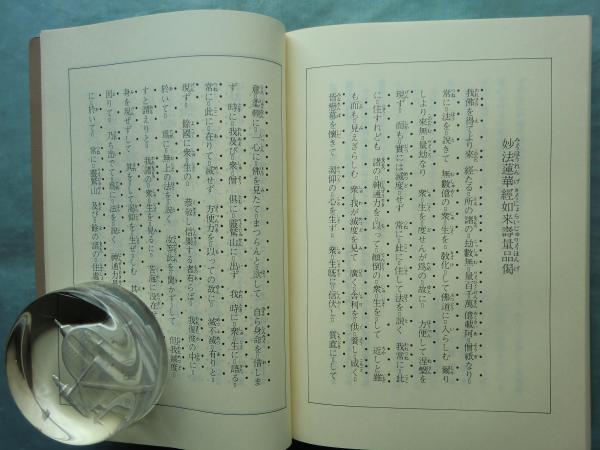 妙法蓮華經如来壽量品偈
我佛を得てより來 經たる所の諸の劫數 無量百千萬 億載阿僧祇なり
常に法を説きて 無數億の衆生を教化して 佛道に入らしむ 爾り
しより來無量劫なり 衆生を度せんが爲の故に 方便して涅槃を
現ず 而も實には滅度せず 常に此に住して法を說く 我常に此
に住すれども 諸の神通力を以って 顛倒の衆生をして 近しと雖
も而も見えざらしむ 衆我が滅度を見て 廣く舍利を供養し 咸く
皆戀慕を懷きて 渇仰の心を生ず 衆生既に信伏し 質直にして
意柔軟に 一心に佛を見たてまつらんと欲して 自ら身命を惜しま
ず 時に我及び衆僧 俱に靈鷲山に出ず 我時に衆生に語る
常に此に在りて滅せず 方便力を以っての故に 滅不滅有りと
現ず 餘國に衆生の 恭敬し信樂する者有らば 我復彼の中に
於いて 爲に無上の法を説く 汝等此を聞かずして 但我滅度
すと謂えり 我諸の衆生を見るに 苦海に沒在
身を見せずして 其をして渇仰を生ぜしむ 其
因りて 乃ち出でて爲に法を説く 神通力
に於いて 常に靈鷲山 及び餘の諸の住處